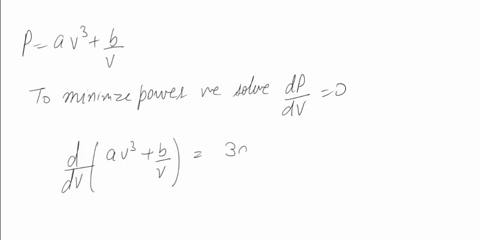 P = av³ + b/v
To minimize power we solve dP/dv = 0
d/dv (av³ + b/v) = 3